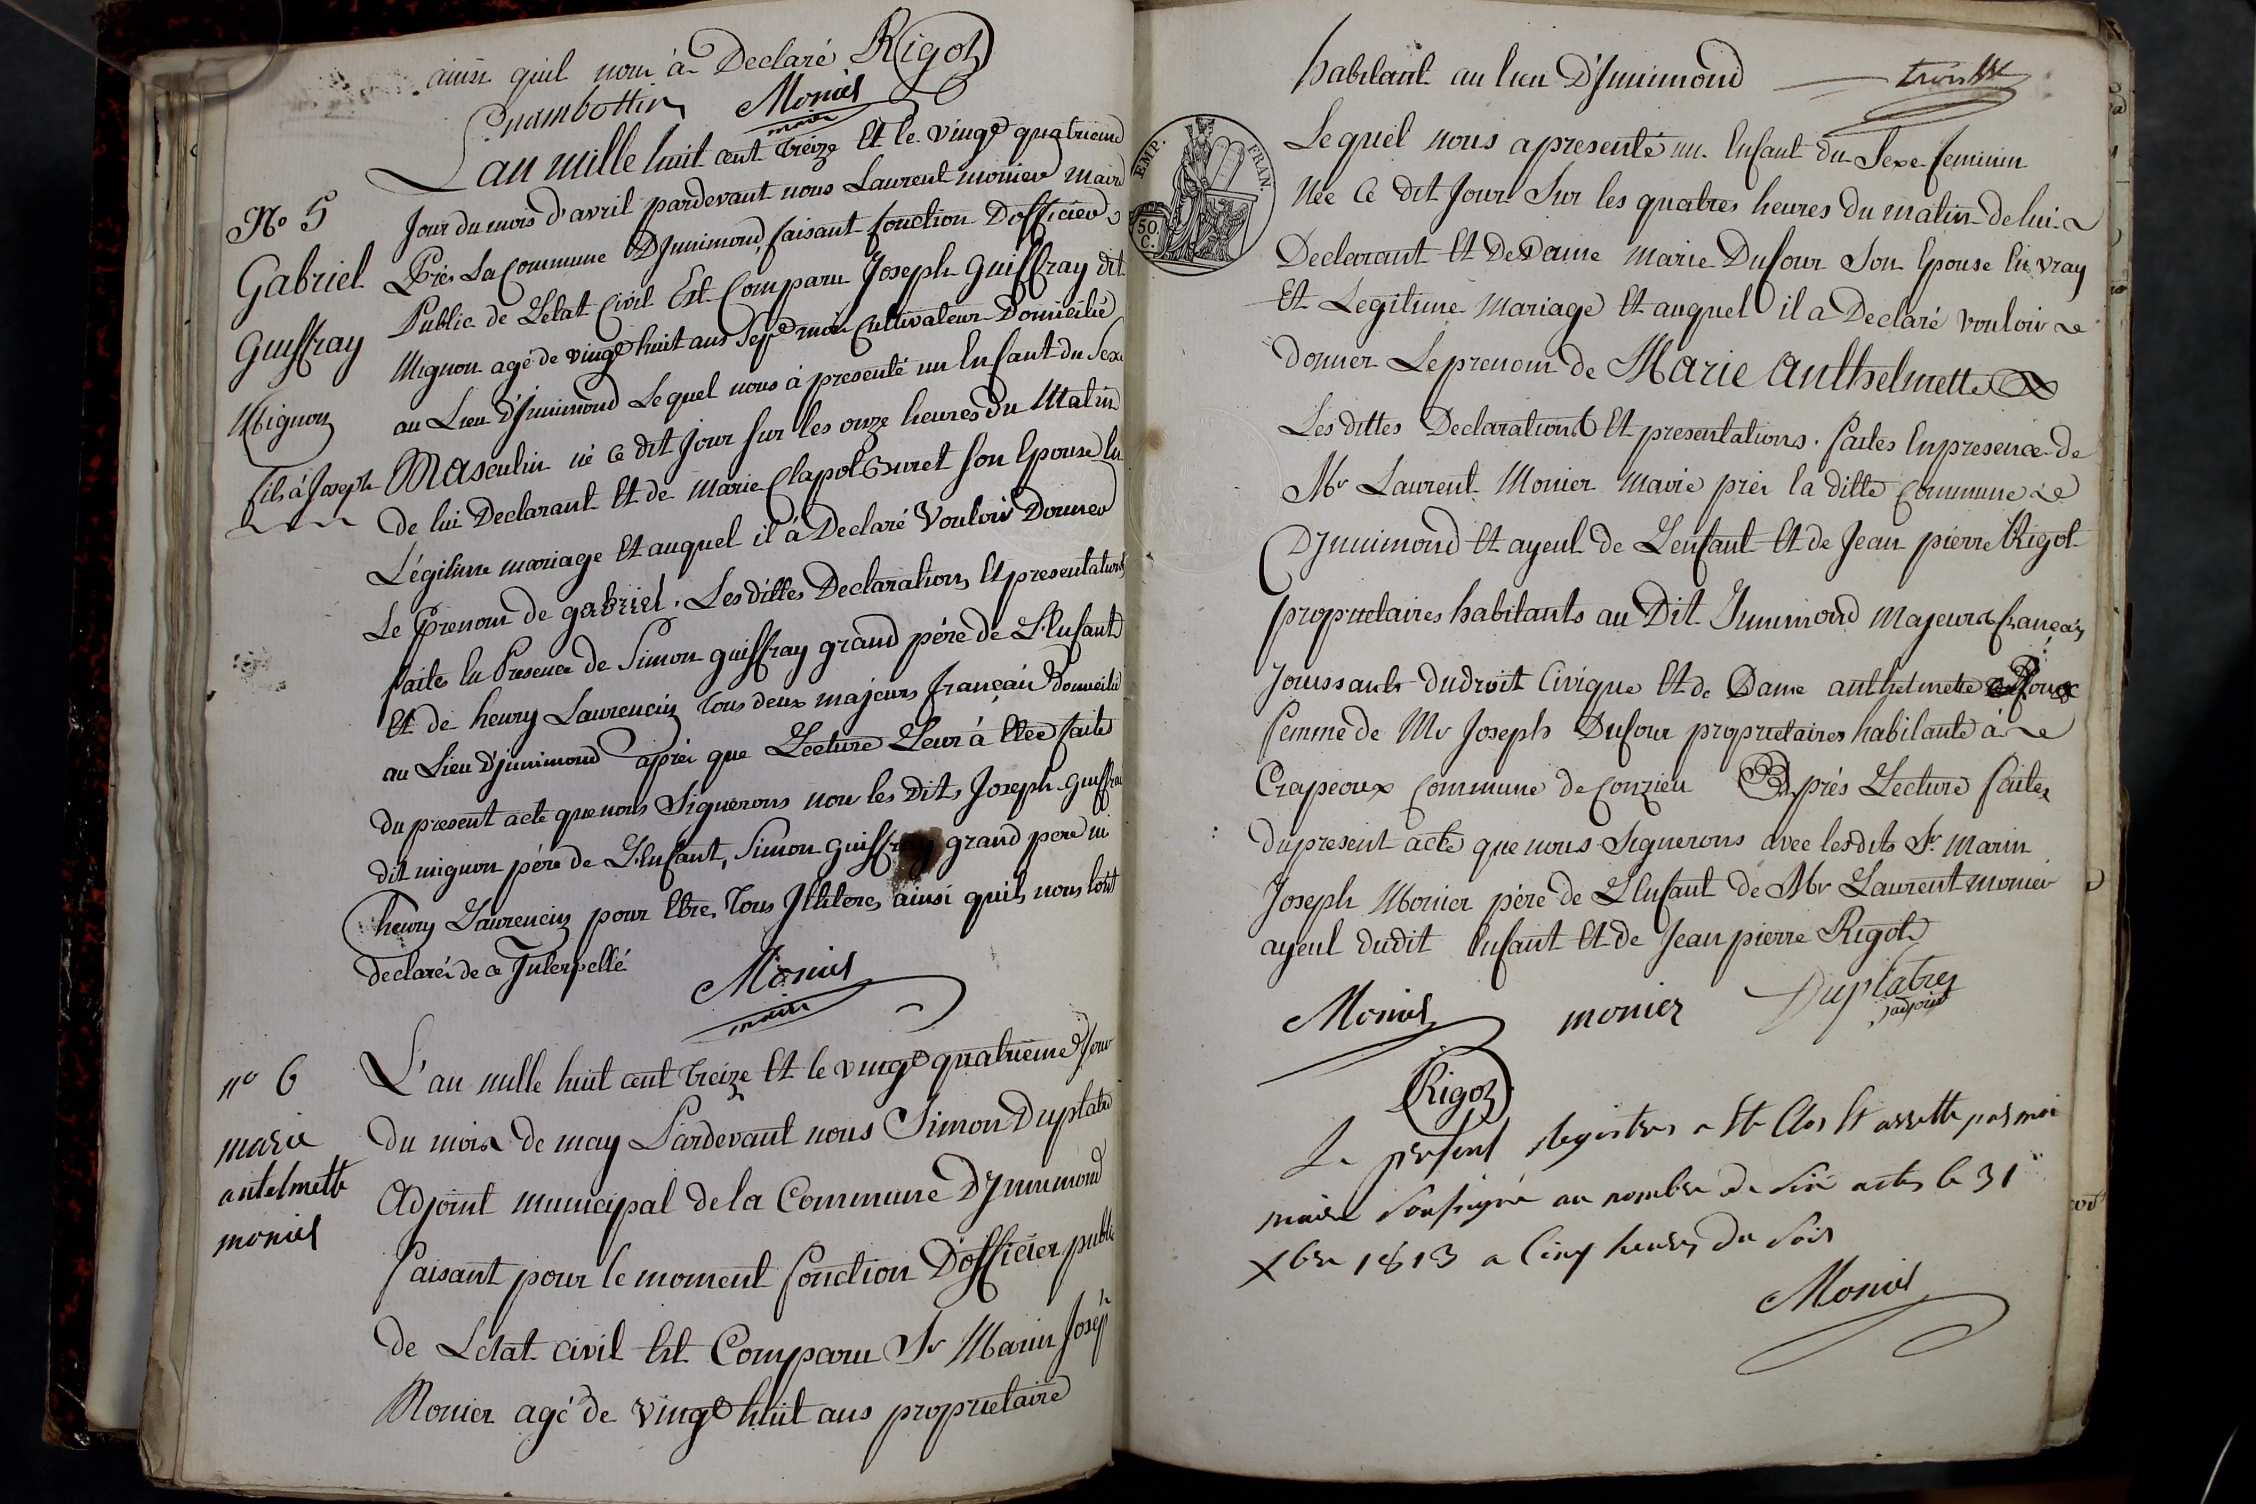 ainsi quil nous à Declaré Rigot
Chambottin Monier
maire
L'an mille huit cent treize Et le vingt quatrieme
No 5
Jour du mois d'avril pardevant nous Laurent monier maire
Gabriel
Près La Commune D'Jnnimond, faisant fonction D'officier
Public de L'etat Civil Est Comparu Joseph Guiffray dit
Guiffray
Mignon agé de vingt huit ans Sept mois Cultivateur Domicilié
Mignon
au Lieu D'Jnnimond Le quel nous à presenté un Enfant du Sexe
fils à Joseph
Masculin né ce dit jour sur les onze heures du Matin
de lui Declarant Et de marie Clapot Buret son Epouse En
Légitime mariage Et auquel il à Declaré Vouloir Donner
Le prenom de gabriel. Les dittes Declarations Et presentations
faites En Presence de Simon guiffray grand pére de L'Enfant
Et de henry Laurencin tous deux majeurs français domicilié
au Lieu D'jnnimond après que Lecture Leur à Etée faite
du present acte que nous Signerons non les Dits Joseph Guiffray
dit mignon pére de L'Enfant, Simon Guiffray grand pere ni
henry Laurencin pour Etre tous Jlliteres ainsi quils nous l'ont
declarés de ce Jnterpellé
Monier
maire
no 6
L'an mille huit cent treize Et le vingt quatrieme Jour
marie
du mois de may Pardevant nous Simon Duplatre
antelmette
Adjoint municipal de la Commune D'Jnnimond
monier
faisant pour le moment fonction D'officier public
de L'etat civil Est Comparu Sr Marin Joseph
Monier agé de vingt huit ans proprietaire
habitant au lieu D'Jnnimond
EMP. FRAN.
50. C.
Le quel nous a presenté un Enfant du Sexe feminin
Née Ce dit Jour Sur les quatres heures du matin de lui
Declarant Et De Dame Marie Dufour Son Epouse En vray
Et Legitime Mariage Et auquel il a Declaré vouloir
donner Le prenom de Marie Anthelmette
Les dittes Declarations Et presentations. faites En presence de
Mr Laurent Monier Maire près la ditte Commune
D'Jnnimond Et ayeul de L'enfant Et de Jean pierre Rigot
proprietaires habitants au Dit Jnnimond Majeurs français
Jouissants du droit Civique Et de Dame anthelmette
femme de Mr Joseph Dufour proprietaires habitante à
Crapeoux Commune de Conzieu Après Lecture faites
du present acte que nous Signerons avec les dits Sr. Marin
Joseph Monier pére de L'Enfant de Mr Laurent Monier
ayeul dudit Enfant Et de Jean pierre Rigot
Monier monier Duplatre
adjoint
Rigot
Le present Registres a Ete Clos Et arretté par moi
maire Soussigné au nombre de Six actes le 31
Xbre 1813 a Cinq heures du Soir
Monier